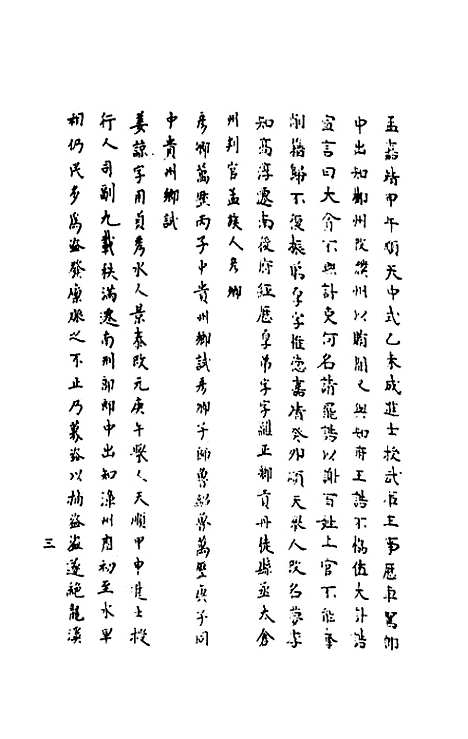 孟嘉靖甲午順天中式乙未成進士授武庫主事歷車駕郎
中出知鄭州改濮州以時聞與知府王誥不協值大計誥
宣言曰大貪不與計吏何名請罷誥以謝百姓上官不能奪
削籍歸不復振鳴皋字惟憲嘉靖癸卯順天舉人改名夢
知高淳遷南後府經歷皋弟字字維正鄉貢丹徒縣丞太倉
州判官孟族人彥卿
彥卿萬曆丙子中貴州鄉試彥卿子師魯紹魯萬曆庚子同
中貴州鄉試
姜諒字用貞秀水人景泰改元庚午舉人天順甲申進士授
行人司副九載秩滿遷南刑部郎中出知漳州府初至水旱
相仍民多為盜發廩賑之不止乃募盜以捕盜盜遂絕龍溪
三